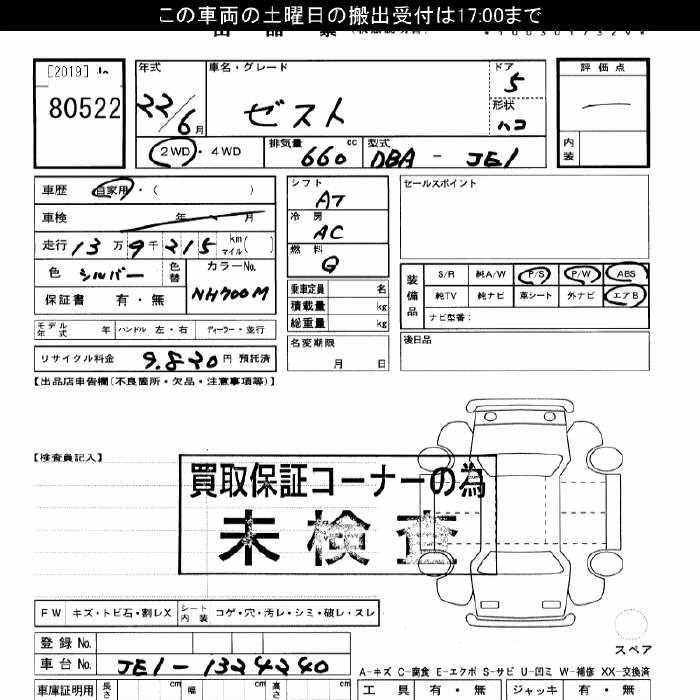 この車両の土曜日の搬出受付は17:00まで
[2019]
80522
年式
22/6月
2WD・4WD
車名・グレード
ゼスト
ドア
5
形状
ハコ
排気量
660 cc
型式
DBA - JE1
評価点
内装
車歴 自家用・( )
車検 年 月
走行 13万9千215 km マイル( )
色 シルバー 色替 カラーNo. NH700M
保証書 有・無
モデル年式 年 ハンドル 左・右 ディーラー・並行
リサイクル料金 9.820円 預託済
シフト
AT
冷房
AC
燃料
G
乗車定員 名
積載量 kg
総重量 kg
名変期限
月 日
セールスポイント
装備品
S/R 純A/W P/S P/W ABS
純TV 純ナビ 革シート 外ナビ エアB
ナビ型番:
後日品
【出品店申告欄(不良箇所・欠品・注意事項等)】
【検査員記入】
買取保証コーナーの為
未検査
FW キズ・トビ石・割レX シート内装 コゲ・穴・汚レ・シミ・破レ・スレ
スペア
登録 No.
車台 No. JE1-1324240
A-キズ C-腐食 E-エクボ S-サビ U-凹ミ W-補修 XX-交換済
車庫証明用 長さ cm 幅 cm 高さ cm
工具 有・無 ジャッキ 有・無